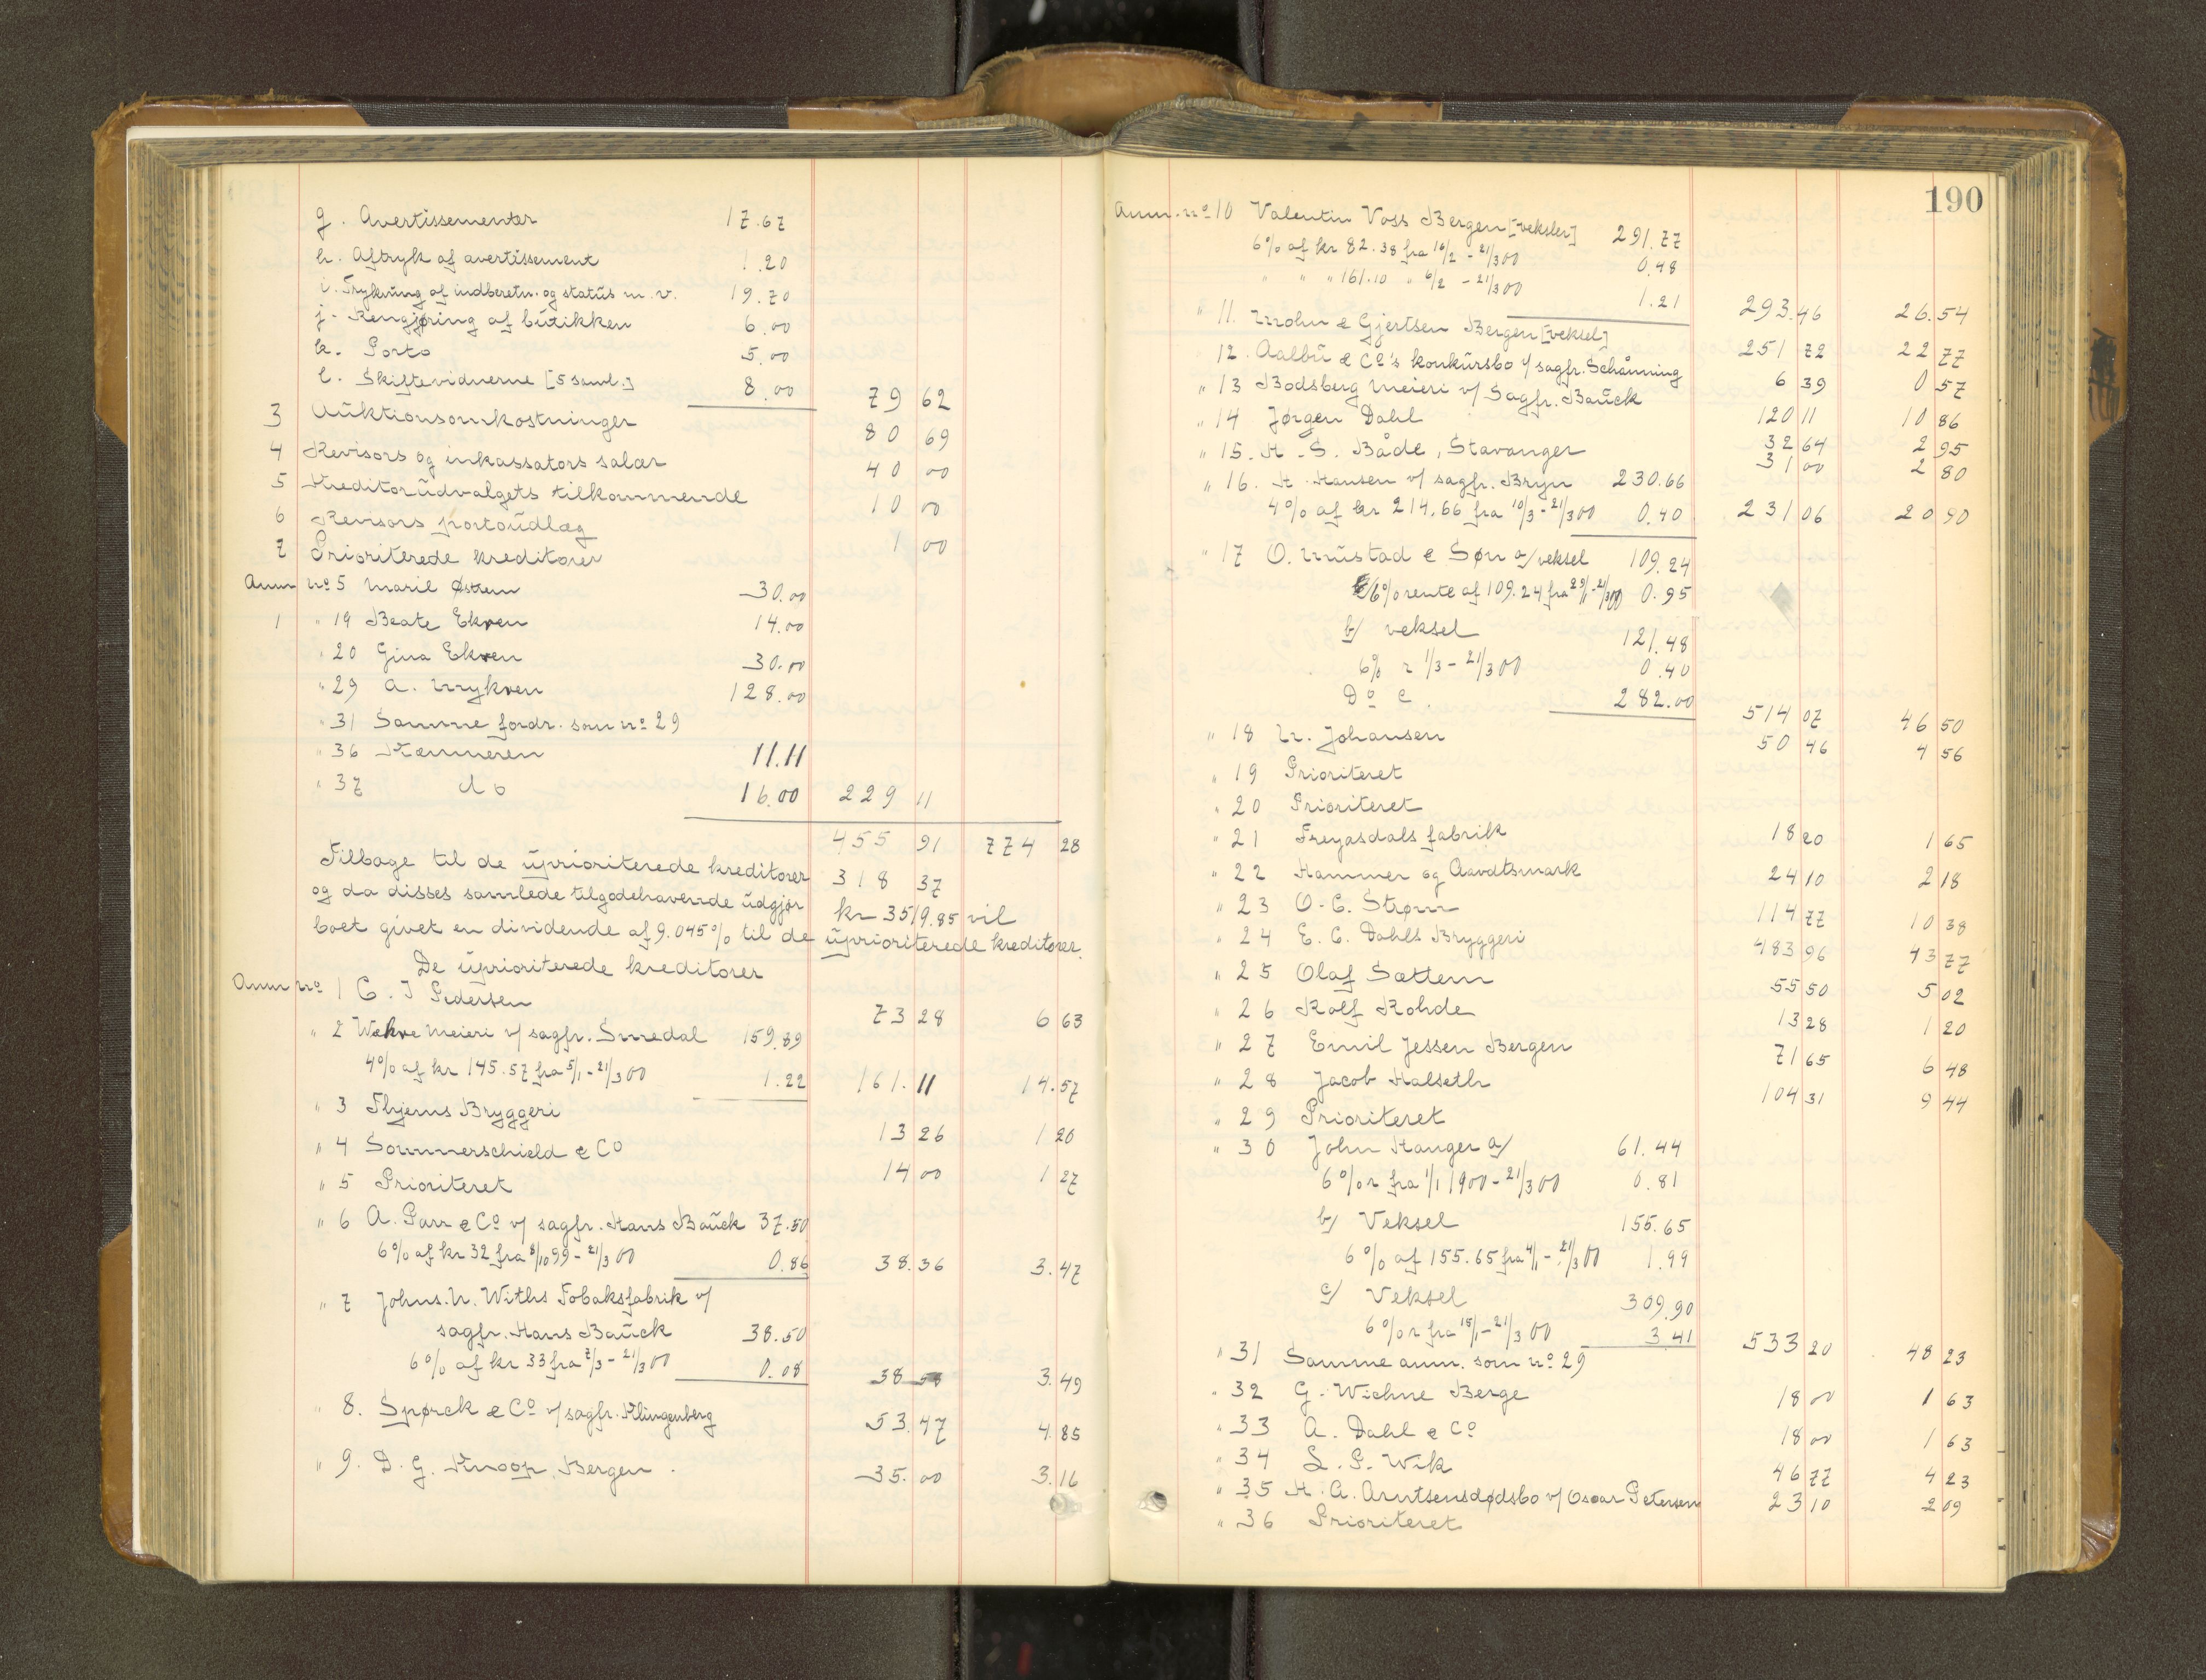 g. Avertissementer 17.67
h. Aftryk af avertissement 1.20
i. Trykning af indberetn. og status m. v. 19.70
j. Rengjøring af butikken 6.00
k. Porto 5.00
l. Skiftevidnerne [5 saml.] 8.00 79 62
3 Auktionsomkostninger 80 69
4 Revisors og inkassators salær 40 00
5 Kreditorudvalgets tilkommende 10 00
6 Revisors portoudlæg 1 00
7 Prioriterede kreditorer
Anm no 5 Maril Østrem 30.00
1 " 19 Beate Ekren 14.00
" 20 Gina Ekren 30.00
" 29 A. Mykren 128.00
" 31 Samme fordr. som no 29
" 36 Kæmneren 11.11
" 37 do 16.00 229 11
455 91 774 28
Tilbage til de uprioriterede kreditorer 318 37
og da disses samlede tilgodehavende udgjør kr 3519.85 vil
boet givet en dividende af 9.045% til de uprioriterede kreditorer.
De uprioriterede kreditorer
Anm no 1 C. J Pedersen 73 28 6 63
" 2 Wækre Meieri v/ sagfr. Smedal 159.89
4% af kr 145.57 fra 5/1 - 21/3 00 1.22 161.11 14.57
" 3 Thjems Bryggeri 13 26 1 20
" 4 Sommerschield & Co 14 00 1 27
" 5 Prioriteret
" 6 A. Parr & Co v/ sagfr. Hans Bauck 37.50
6% af kr 32 fra 8/10 99 - 21/3 00 0.86 38.36 3.47
" 7 Johns. N. Withs Tobaksfabrik v/
sagfr. Hans Bauck 38.50
6% af kr 33 fra 7/3 - 21/3 00 0.08 38 58 3.49
" 8. Spørck & Co v/ sagfr. Klingenberg 53.47 4.85
" 9. D. G. Knoop, Bergen. 35.00 3.16
190
Anm. no 10 Valentin Voss Bergen [veksler] 291.77
6% af kr 82.38 fra 16/2 - 21/3 00 0.48
" " " 161.10 " 6/2 - 21/3 00 1.21 293.46 26.54
" 11. Mohn & Gjertsen Bergen [veksel] 251 72 22 77
12. Aalbu & Co's konkursbo v/ sagfr. Schånning 6 39 0 57
" 13 Bodsberg Meieri v/ Sagfr. Bauck 120 11 10 86
" 14 Jørgen Dahl 32 64 2 95
" 15. H. S. Både, Stavanger 31 00 2 80
" 16. H. Hansen v/ sagfr. Bryn 230.66
4% af kr 214.66 fra 10/3 - 21/3 00 0.40 231 06 20 90
" 17 O. Mustad & Søn a/ veksel 109.24
6% rente af 109.24 fra 29/1 - 21/3 00 0.95
b/ veksel 121.48
6% r 1/3 - 21/3 00 0.40
Do c. 282.00 514 07 46 50
" 18 N. Johansen 50 46 4 56
" 19 Prioriteret
" 20 Prioriteret
" 21 Freyasdals fabrik 18 20 1 65
" 22 Hammer og Aavdtsmark 24 10 2 18
" 23 O. C. Strøm 114 77 10 38
" 24 E. C. Dahls Bryggeri 483 96 43 77
" 25 Olaf Sættem 55 50 5 02
" 26 Rolf Rohde 13 28 1 20
" 27 Emil Jessen Bergen 71 65 6 48
" 28 Jacob Halseth 104 31 9 44
" 29 Prioriteret
" 30 John Hanger a/ 61.44
6% r fra 1/1 1900 - 21/3 00 0.81
b/ Veksel 155.65
6% af 155.65 fra 4/1 - 21/3 00 1.99
c/ Veksel 309.90
6% r fra 15/1 - 21/3 00 3.41 533 20 48 23
" 31 Samme anm. som no 29
" 32 G. Wichne Berge 18 00 1 63
" 33 A. Dahl & Co 18 00 1 63
" 34 L. P. Wik 46 77 4 23
" 35 H. A. Arntsens dødsbo v/ Oscar Petersen 23 10 2 09
" 36 Prioriteret